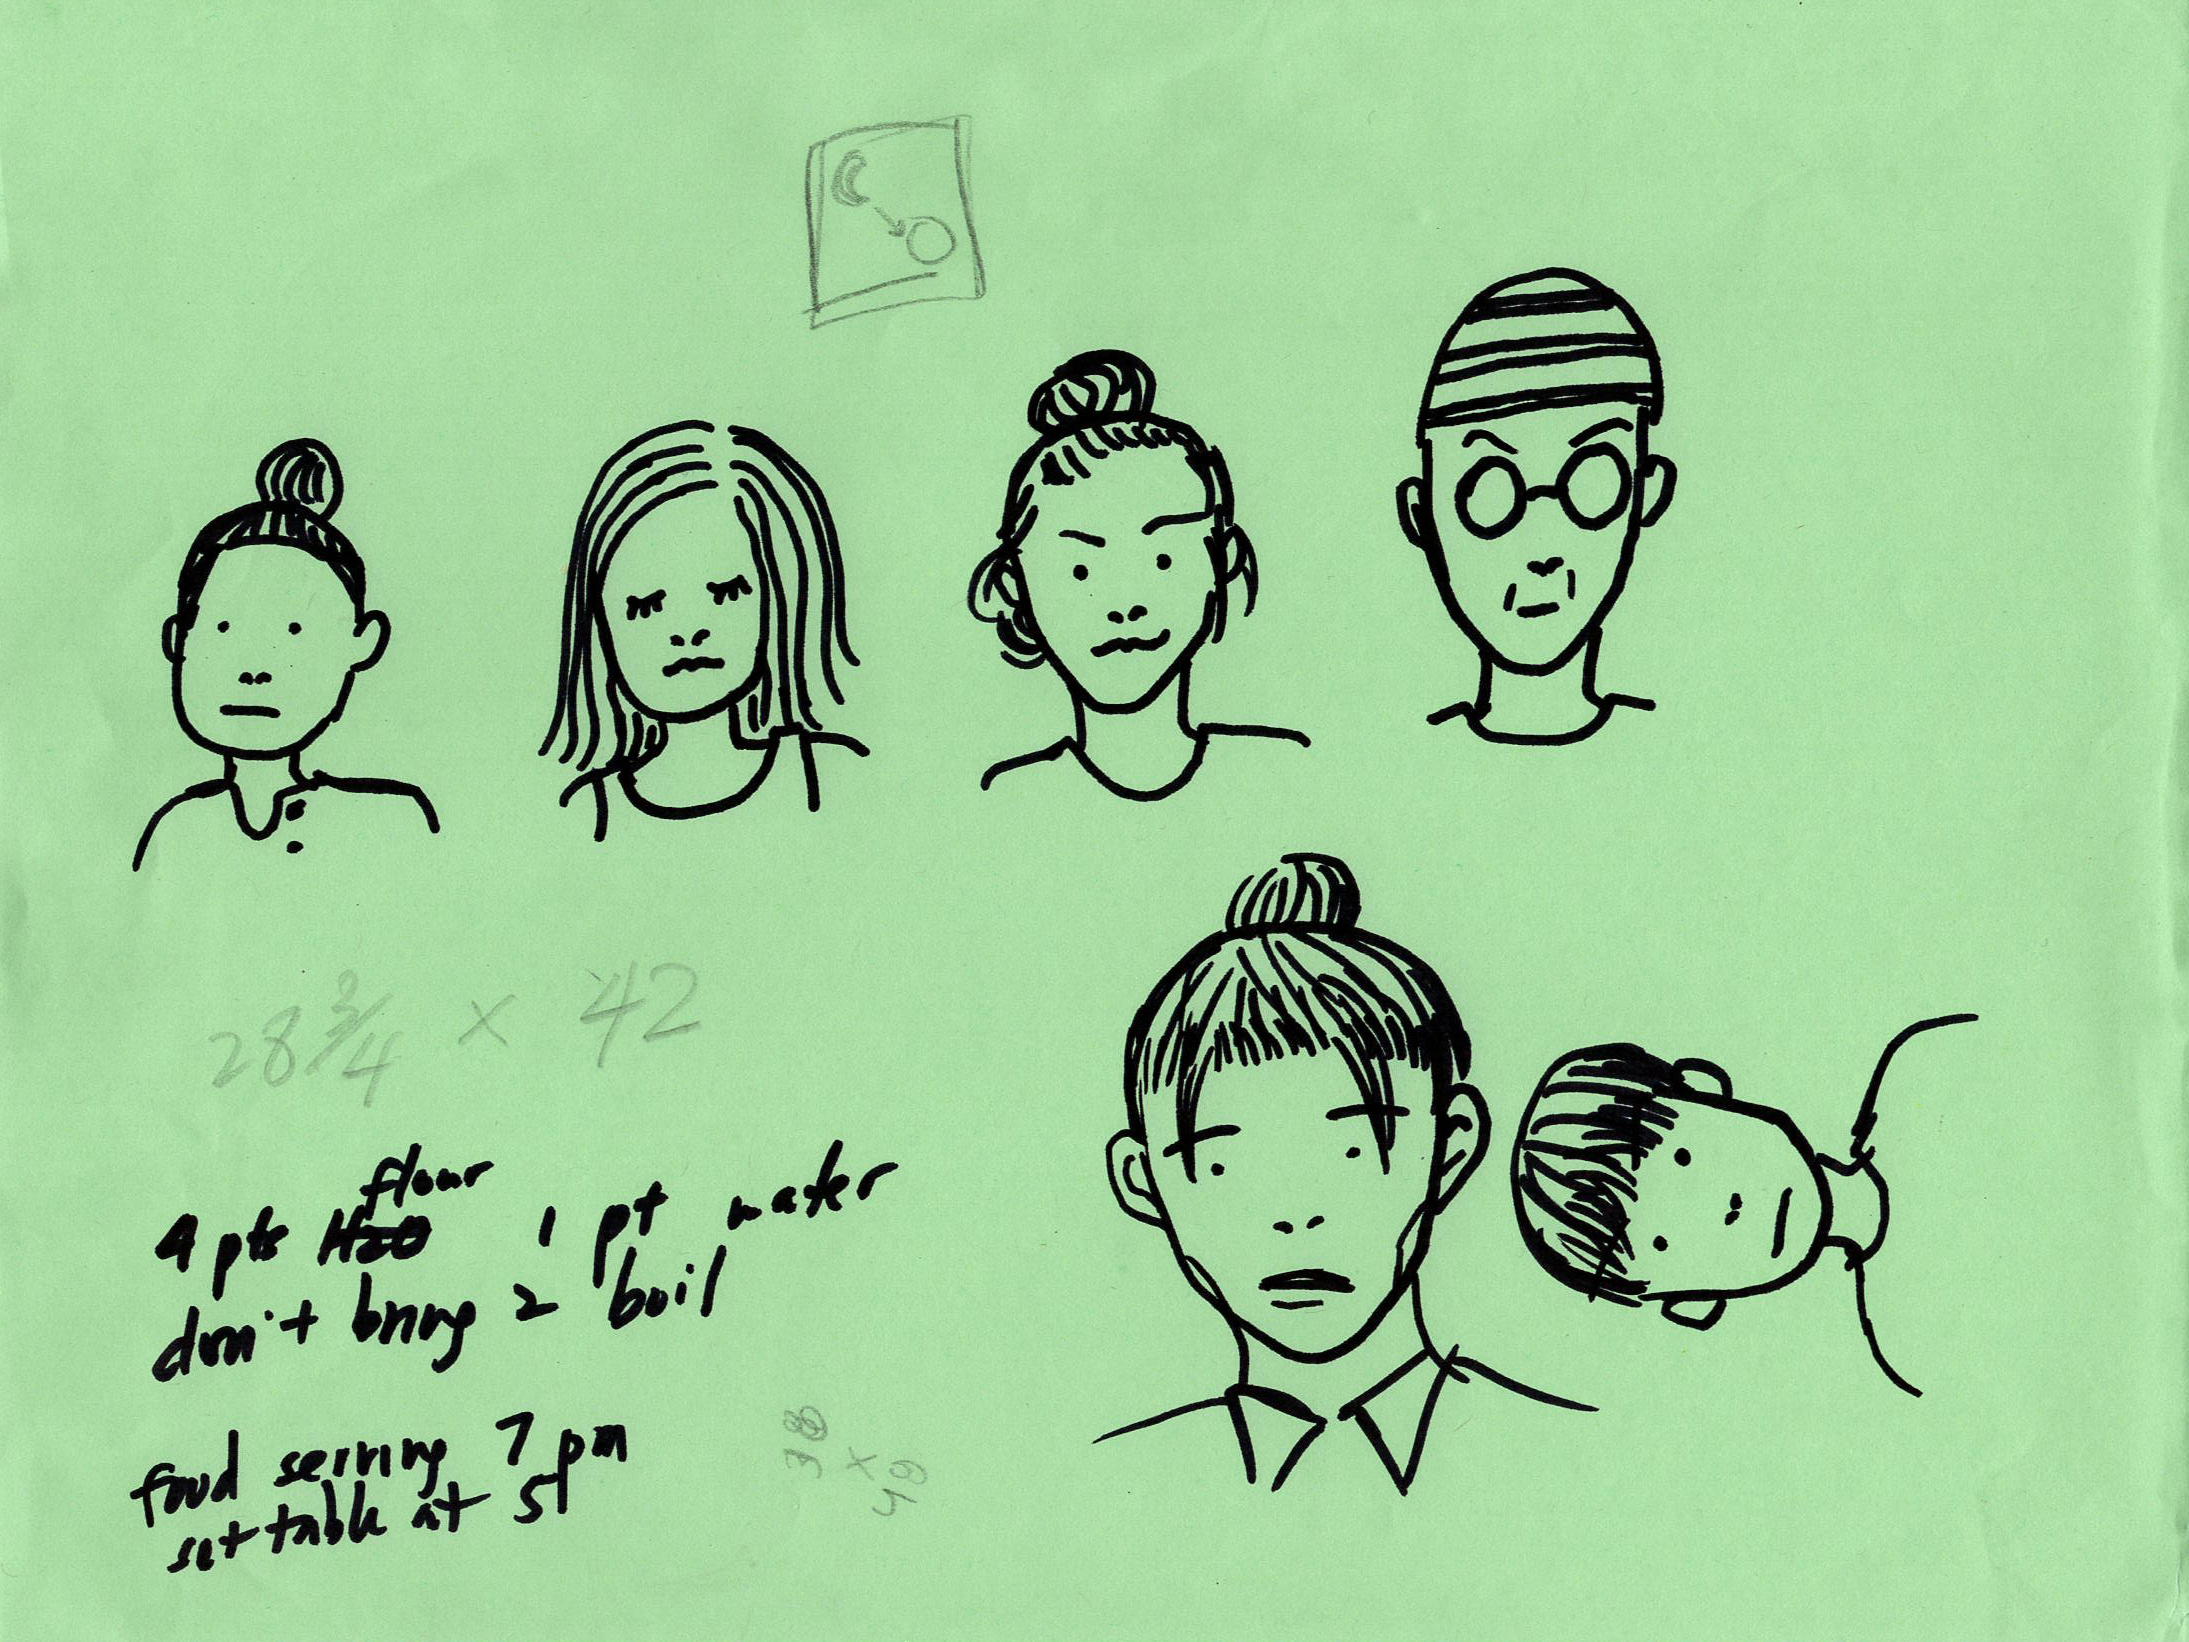 28 3/4 x 42
flour
4 pts H20 1 pt water
don't bring 2 boil
food serving 7 pm
set table at 5
38
x
49